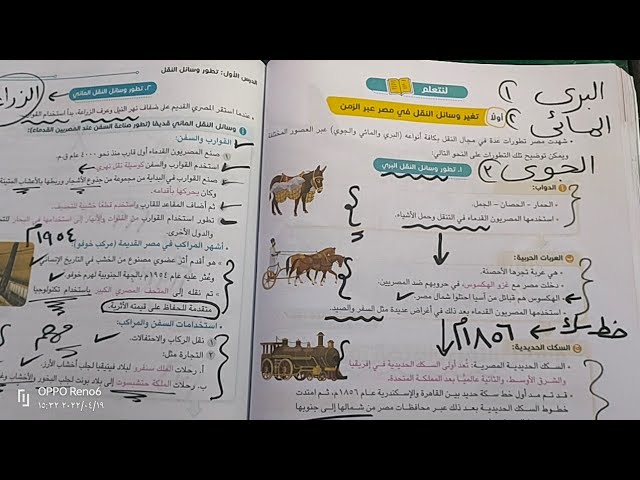 لنتعلم
أولًا تغير وسائل النقل في مصر عبر الزمن
البرى ١
المائى ٢
الجوى ٣
شهدت مصر تطورات عدة في مجال النقل بكافة أنواعه (البري والمائي والجوي) عبر العصور المختلفة
ويمكن توضيح تلك التطورات على النحو التالي:
١. تطور وسائل النقل البري
الدواب:
- الحمار - الحصان - الجمل.
- استخدمها المصريون القدماء في التنقل وحمل الأشياء.
العربات الحربية:
- هي عربة تجرها الأحصنة.
- دخلت مصر مع غزو الهكسوس في حروبهم ضد المصريين.
الهكسوس هم قبائل من آسيا احتلوا شمال مصر
- استخدمها المصريون القدماء بعد ذلك في أغراض عديدة مثل السفر والصيد.
خط سكك
١٨٥٦م
السكك الحديدية:
السكك الحديدية المصرية: تُعد أولى السكك الحديدية في إفريقيا
والشرق الأوسط، والثانية عالميًّا بعد المملكة المتحدة.
خط سكة حديد بين القاهرة والإسكندرية عام ١٨٥٦م، ثم امتدت
خطوط السكك الحديدية بعد ذلك عبر محافظات مصر من شمالها إلى جنوبها
الدرس الأول: تطور وسائل النقل
٢. تطور وسائل النقل المائي
عندما استقر المصري القديم على ضفاف نهر النيل وعرف الزراعة، بدأ استخدام
وسائل النقل المائي قديمًا (تطور صناعة السفن عند المصريين القدماء):
القوارب والسفن:
صنع المصريون القدماء أول قارب منذ نحو ٤٠٠٠ عام ق.م.
استخدم القدماء السفن كوسيلة نقل نهري
صنع القوارب في البداية من مجموعة من جذوع الأشجار وربطها بالأعشاب
وكان يحركها بأقدامه.
ثم أضاف المقاعد للقارب واستخدم قطعًا خشبية للتجديف.
تطور استخدام القوارب من القنوات والأنهار إلى استخدامها في البحار
والدول الأخرى.
١٩٥٤م
أشهر المراكب في مصر القديمة (مركب خوفو)
هو أقدم أثر عضوي مصنوع من الخشب في التاريخ الإنساني
وعُثر عليه عام ١٩٥٤م بالجهة الجنوبية لهرم خوفو.
تم نقله إلى المتحف المصري الكبير باستخدام تكنولوجيا
متقدمة للحفاظ على قيمته الأثرية.
استخدامات السفن والمراكب:
١ نقل الركاب والاحتفالات.
مهم
٢ التجارة مثل:
أ. رحلات الملك سنفرو لبلاد فينيقيا لجلب أخشاب الأرز.
ب. رحلات الملكة حتشبسوت إلى بلاد بونت لجلب البخور
OPPO Reno6
١٥:٣٢ ٢٠٢٢/٠٤/١٩